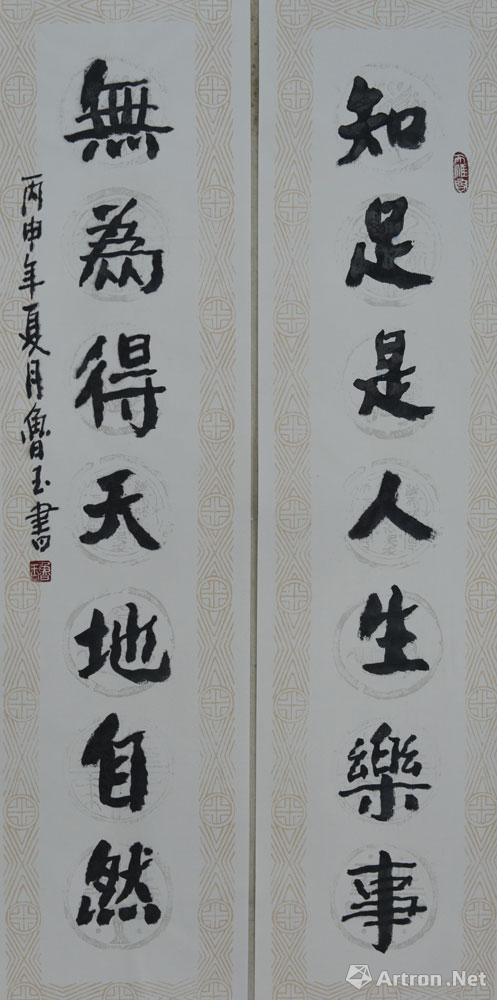 知足是人生樂事
無為得天地自然
丙申年夏月魯玉書
Artron.Net